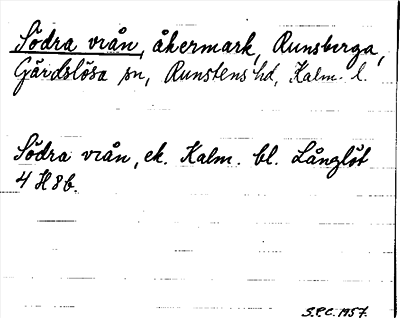 Södra vrån, åkermark, Runsberga,
Gärdslösa sn, Runstens hd, Kalm. l.
Södra vrån, ek. Kalm. bl. Långlöt
4 H 8 b.
S.P.C. 1957.